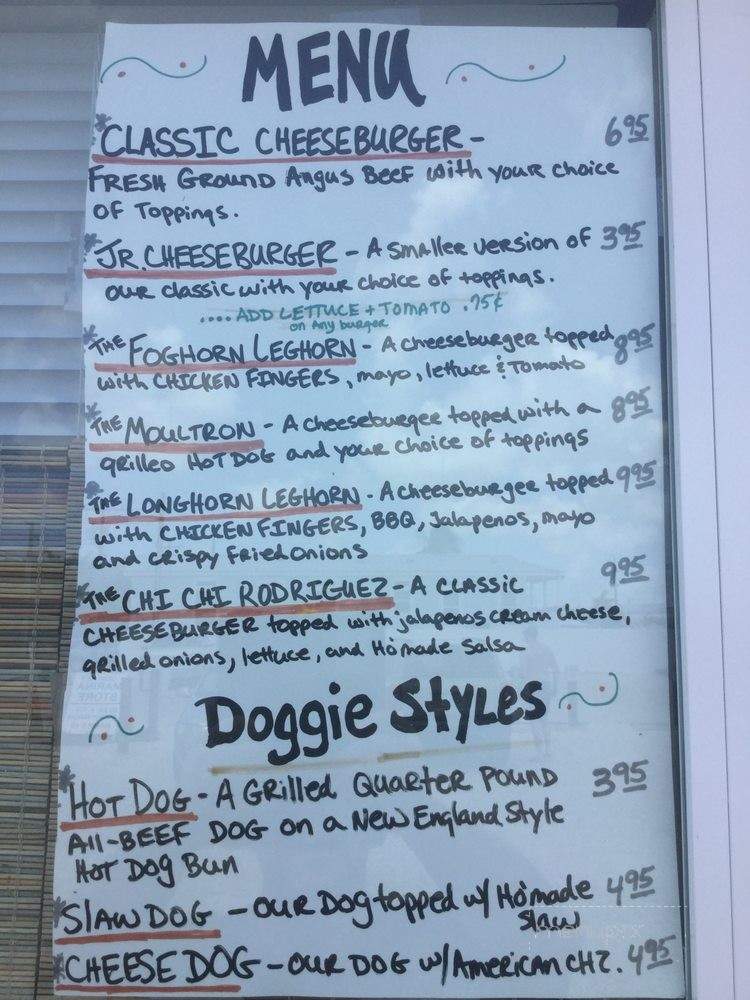 MENU
*CLASSIC CHEESEBURGER- 6.95
FRESH GROUND Angus Beef with your choice
of Toppings.
*JR. CHEESEBURGER - A smaller version of 3.95
our classic with your choice of toppings.
.... ADD LETTUCE + TOMATO .75¢
on Any burger
*THE FOGHORN LEGHORN - A cheeseburger topped 8.95
with CHICKEN FINGERS, mayo, lettuce & Tomato
*THE MOULTRON - A cheeseburger topped with a 8.95
grilled HOT DOG and your choice of toppings
*THE LONGHORN LEGHORN - A cheeseburger topped 9.95
with CHICKEN FINGERS, BBQ, Jalapenos, mayo
and crispy fried onions
*THE CHI CHI RODRIGUEZ - A CLASSIC 9.95
CHEESEBURGER topped with jalapenos cream cheese,
grilled onions, lettuce, and Homade Salsa
Doggie Styles
*HOT DOG - A Grilled Quarter Pound 3.95
All-BEEF DOG on a New England Style
Hot Dog Bun
*SLAW DOG - our Dog topped w/ Homade 4.95
Slaw
*CHEESE DOG - our DOG w/ American CHZ. 4.95